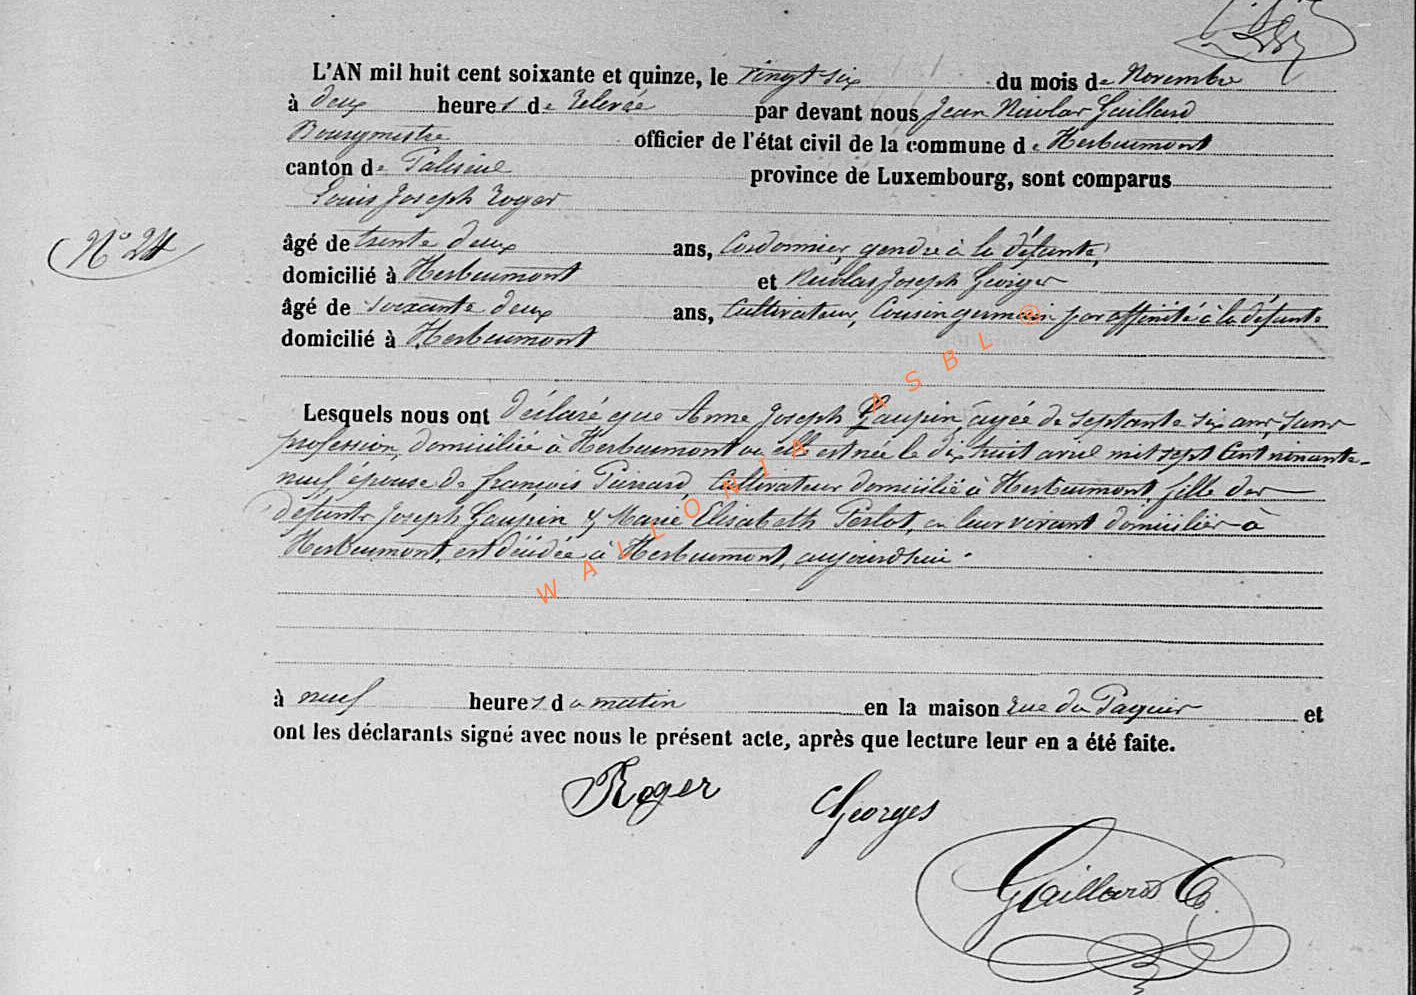 L'AN mil huit cent soixante et quinze, le vingt six du mois de Novembre
à deux heures de relevée par devant nous Jean Nicolas Gaillard
Bourgmestre officier de l'état civil de la commune de Herbeumont
canton de Paliseul province de Luxembourg, sont comparus
Louis Joseph Roger
N° 24
âgé de trente deux ans, Cordonnier, gendre à la défunte,
domicilié à Herbeumont et Nicolas Joseph Georges
âgé de soixante deux ans, Cultivateur, Cousin germain par affinité à la défunte
domicilié à Herbeumont
Lesquels nous ont déclaré que Anne Joseph Gaupin, agée de septante six ans, sans
profession, domiciliée à Herbeumont où elle est née le dix huit avril mil sept Cent nonante-
neuf épouse de françois Pierrard, Cultivateur domicilié à Herbeumont, fille des
défunts Joseph Gaupin & Marie Elisabeth Perlot, en leur vivant domiciliés à
Herbeumont, est décédée à Herbeumont, aujourd'hui
à neuf heures du matin en la maison rue du Paquis et
ont les déclarants signé avec nous le présent acte, après que lecture leur en a été faite.
Roger Georges
Gaillard
WALLONIA ASBL @